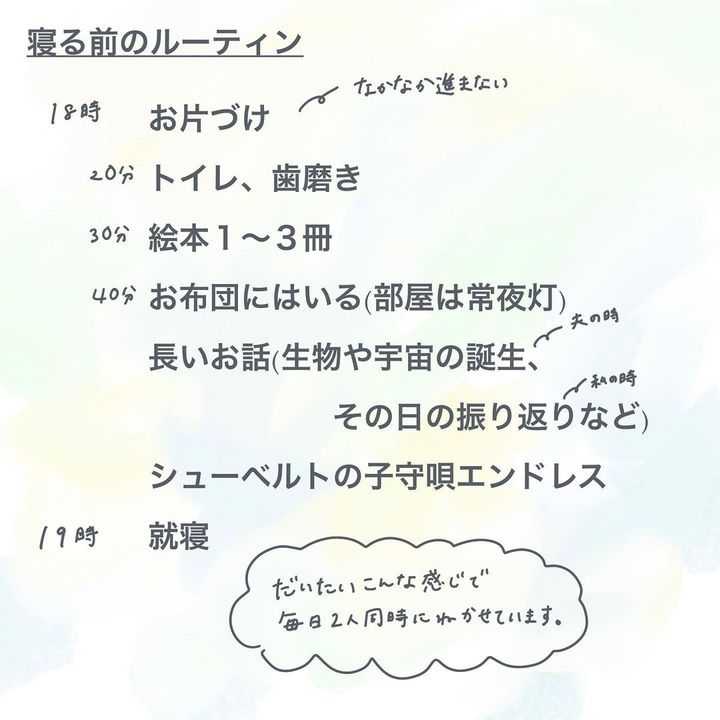 寝る前のルーティン
なかなか進まない
18時 お片づけ
20分 トイレ、歯磨き
30分 絵本１〜３冊
40分 お布団にはいる(部屋は常夜灯)
夫の時
長いお話(生物や宇宙の誕生、
私の時
その日の振り返りなど)
シューベルトの子守唄エンドレス
19時 就寝
だいたいこんな感じで
毎日2人同時にねかせています。